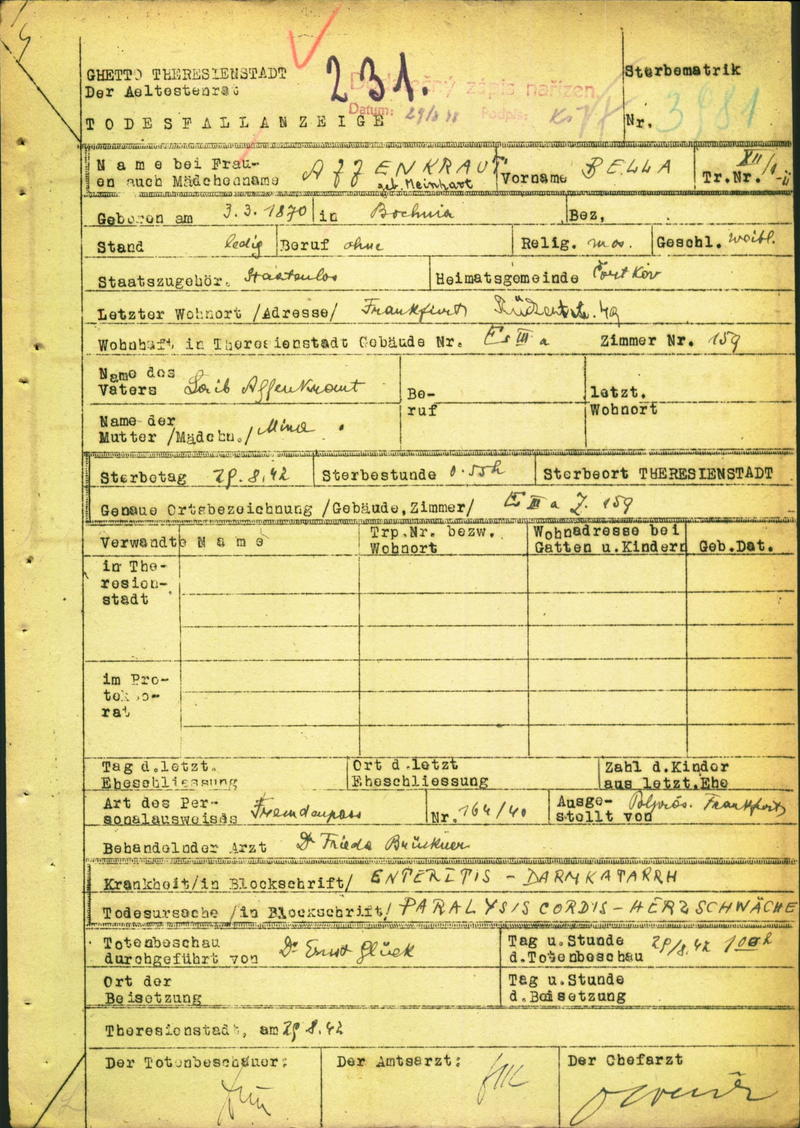 GHETTO THERESIENSTADT
Der Aeltestenrat
231.
Dodatečný zápis nařízen
Datum: Podpis:
Sterbematrik
Nr. 3981
TODESFALLANZEIGE
Name bei Frau- AFFENKRAUT Vorname BELLA Tr.Nr. XII/1-
en auch Mädchenname geb. Meinhart
Geboren am 3.3.1870 in Bochnia Bez,
Stand ledig Beruf ohne Relig. mos. Geschl. weibl.
Staatszugehör. Staatenlos Heimatsgemeinde Čortkov
Letzter Wohnort /Adresse/ Frankfurt
Wohnhaft in Theresienstadt Gebäude Nr. E III a Zimmer Nr. 159
Name des Vaters Leib Affenkraut Be-ruf letzt. Wohnort
Name der Mutter /Mädchn./ Mina
Sterbetag 29.8.42 Sterbestunde 0.55h Sterbeort THERESIENSTADT
Genaue Ortsbezeichnung /Gebäude, Zimmer/ E III a Z. 159
Verwandte Name Trp.Nr. bezw. Wohnort Wohnadresse bei Gatten u.Kindern Geb.Dat.
in The-
resien-
stadt
im Pro-
tek o-
rat
Tag d.letzt. Eheschliessung Ort d.letzt Eheschliessung Zahl d.Kinder aus letzt.Ehe
Art des Per-sonalausweises Fremdenpass Nr. 164/40 Ausge-stellt von Polpräs. Frankfurt
Behandelnder Arzt Dr Frieda Brückner
Krankheit/in Blockschrift/ ENTERITIS - DARMKATARRH
Todesursache /in Blockschrift/ PARALYSIS CORDIS - HERZSCHWÄCHE
Totenbeschau durchgeführt von Dr Ernst Glück Tag u.Stunde d.Totenbeschau 29/8.42
Ort der Beisetzung Tag u.Stunde d.Beisetzung
Theresienstadt, am 29.8.42
Der Totenbeschauer: Der Amtsarzt: Der Chefarzt